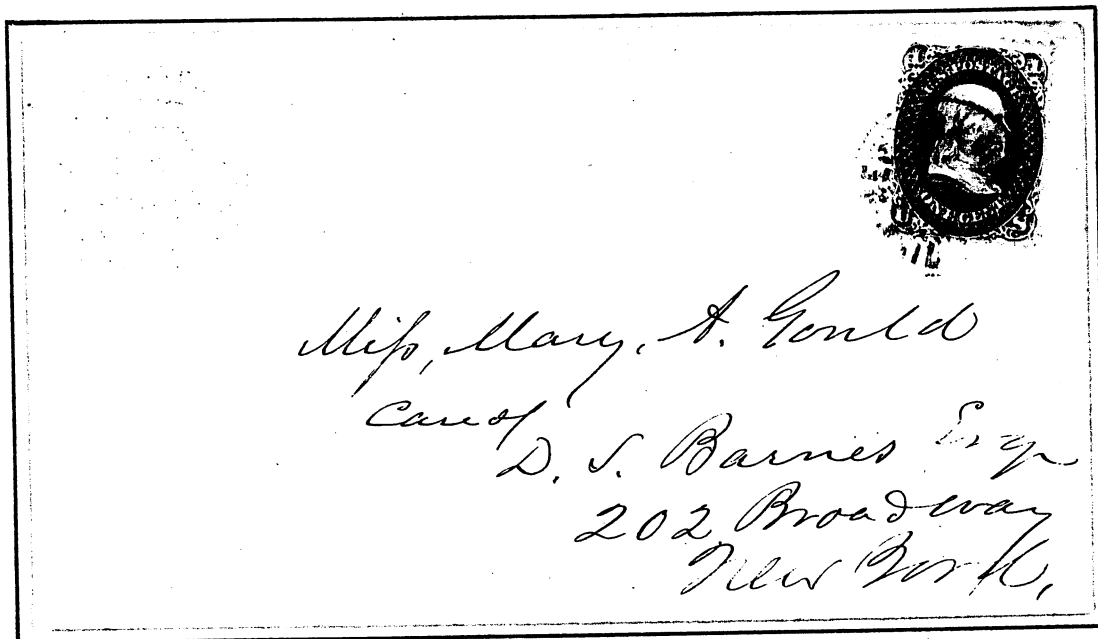 U.S. POSTAGE
ONE CENT
Miss, Mary, A. Gould
Care of
D. S. Barnes Esq
202 Broadway
New York,